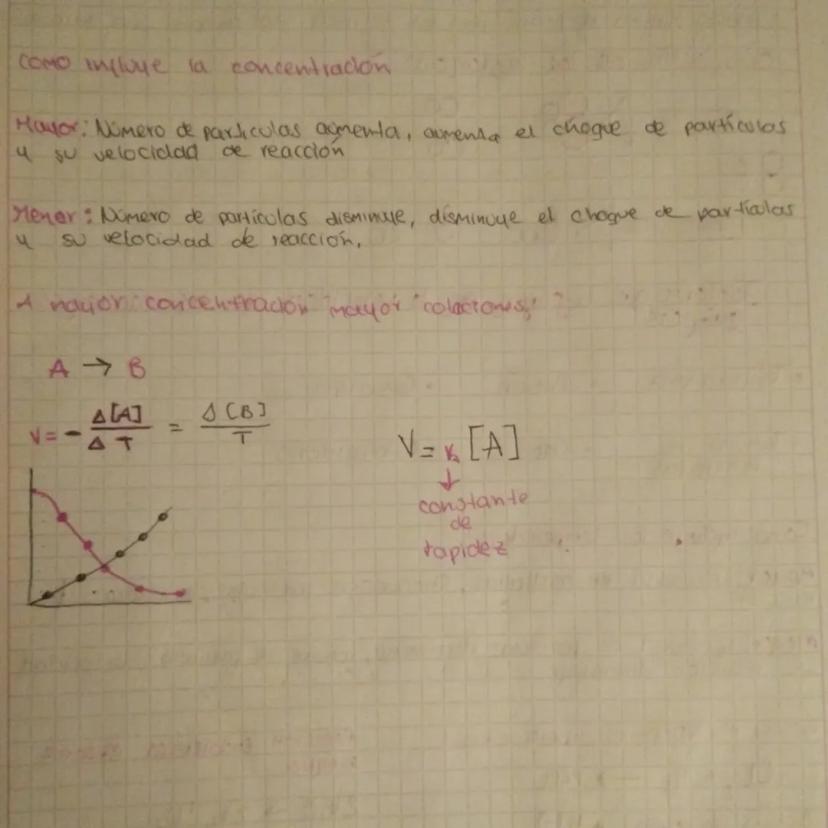 como influye la concentración
Mayor: Número de particulas aumenta, aumenta el choque de partículas
y su velocidad de reacción
Menor: Número de partículas disminuye, disminuye el choque de partículas
y su velocidad de reacción.
A mayor concentración mayor colaciones
A → B
V = - Δ[A] / Δ T = Δ[B] / T
V = k [A]
constante
de
rapidez